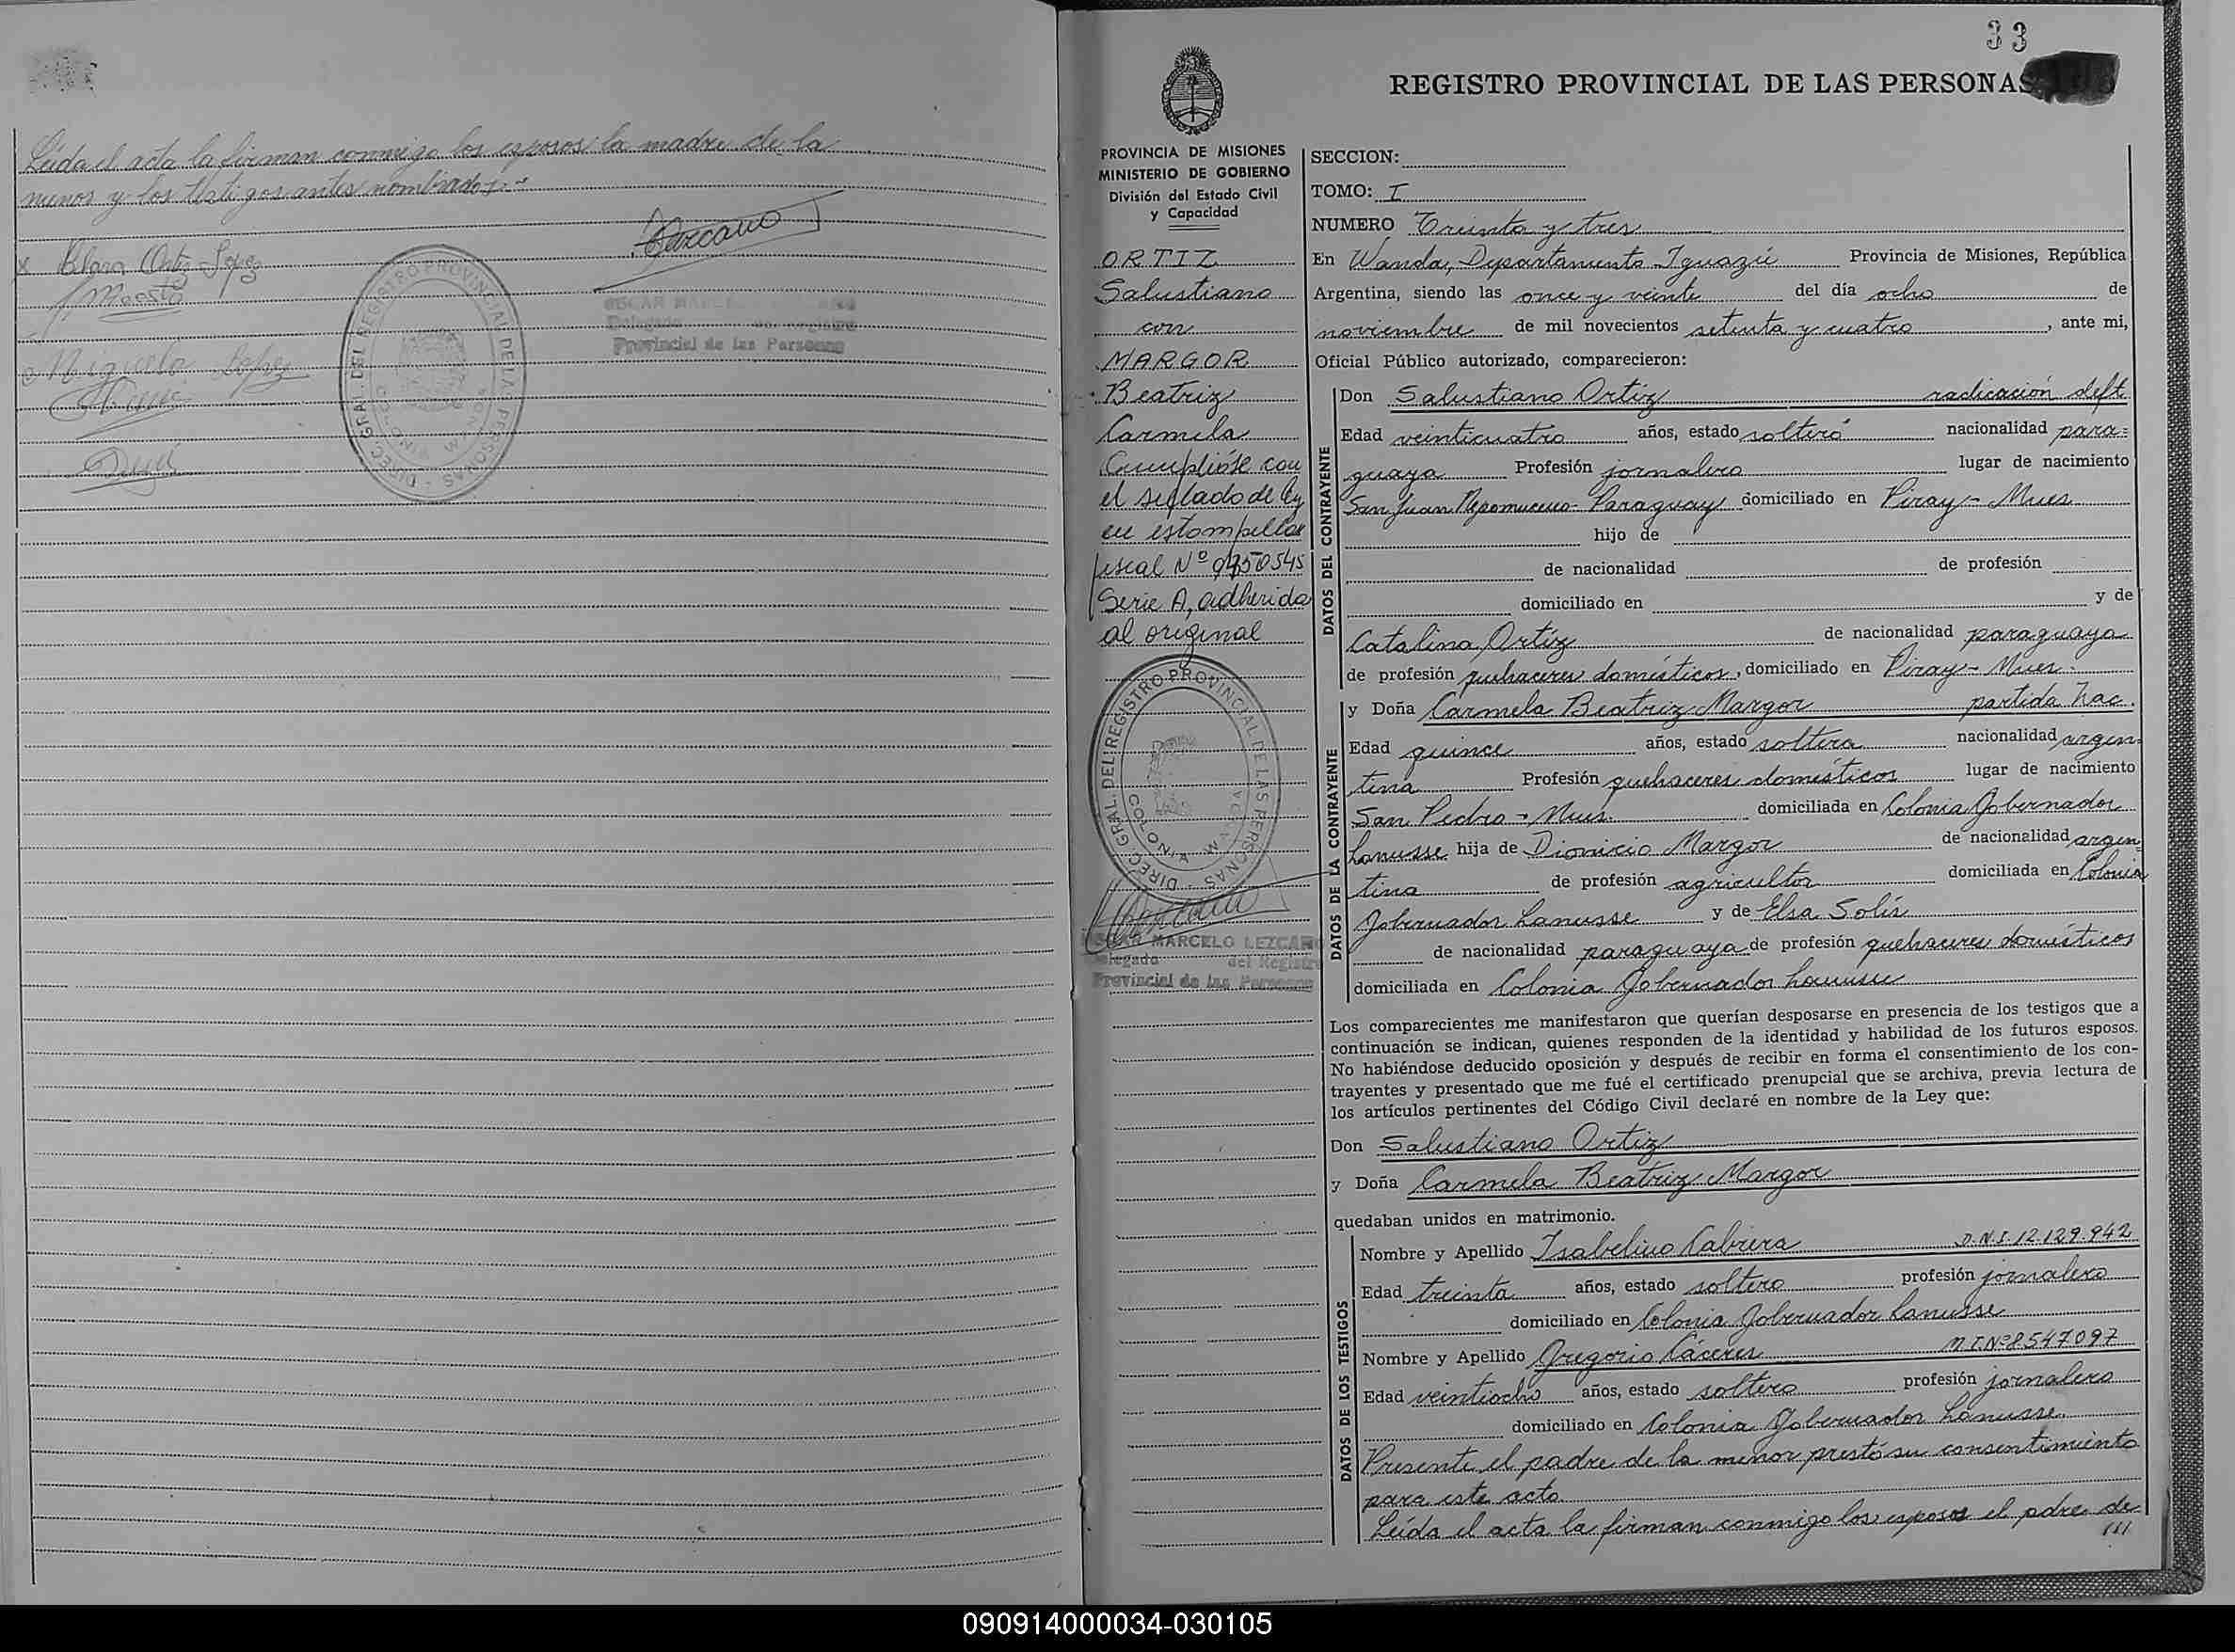 Leída el acta la firman conmigo los esposos la madre de la
menor y los testigos antes nombrados.
x Clara Ortiz Lopez
Lezcano
OSCAR MARCELO LEZCANO
Delegado del Registro
Provincial de las Personas
Lopez
DIREC. GRAL. DEL REGISTRO PROVINCIAL DE LAS PERSONAS
COLONIA WANDA
33
REGISTRO PROVINCIAL DE LAS PERSONAS
PROVINCIA DE MISIONES
MINISTERIO DE GOBIERNO
División del Estado Civil
y Capacidad
ORTIZ
Salustiano
con
MARGOR
Beatriz
Carmela
Cumplióse con
el sellado de ley
en estampillas
fiscal Nº 0450545
Serie A, adherida
al original
DIREC. GRAL. DEL REGISTRO PROVINCIAL DE LAS PERSONAS
COLONIA WANDA
OSCAR MARCELO LEZCANO
Delegado del Registro
Provincial de las Personas
SECCION:
TOMO: I
NUMERO Treinta y tres
En Wanda, Departamento Iguazú Provincia de Misiones, República
Argentina, siendo las once y veinte del día ocho de
noviembre de mil novecientos setenta y cuatro, ante mi,
Oficial Público autorizado, comparecieron:
DATOS DEL CONTRAYENTE
Don Salustiano Ortiz radicación deft
Edad veinticuatro años, estado soltero nacionalidad para=
guaya Profesión jornalero lugar de nacimiento
San Juan Nepomuceno - Paraguay domiciliado en Piray - Mnes
hijo de
de nacionalidad de profesión
domiciliado en y de
Catalina Ortiz de nacionalidad paraguaya
de profesión quehaceres domésticos, domiciliado en Piray - Mnes.
DATOS DE LA CONTRAYENTE
y Doña Carmela Beatriz Margor partida nac.
Edad quince años, estado soltera nacionalidad argen=
tina Profesión quehaceres domésticos lugar de nacimiento
San Pedro - Mnes. domiciliada en Colonia Gobernador
Lanusse hija de Dionicio Margor de nacionalidad argen=
tina de profesión agricultor domiciliada en Colonia
Gobernador Lanusse y de Elsa Solis
de nacionalidad paraguaya de profesión quehaceres domésticos
domiciliada en Colonia Gobernador Lanusse
Los comparecientes me manifestaron que querían desposarse en presencia de los testigos que a
continuación se indican, quienes responden de la identidad y habilidad de los futuros esposos.
No habiéndose deducido oposición y después de recibir en forma el consentimiento de los con-
trayentes y presentado que me fué el certificado prenupcial que se archiva, previa lectura de
los artículos pertinentes del Código Civil declaré en nombre de la Ley que:
Don Salustiano Ortiz
y Doña Carmela Beatriz Margor
quedaban unidos en matrimonio.
DATOS DE LOS TESTIGOS
Nombre y Apellido Isabelino Cabrera D.N.I. 12.129.942
Edad treinta años, estado soltero profesión jornalero
domiciliado en Colonia Gobernador Lanusse
Nombre y Apellido Gregorio Cáceres M.I.Nº8547097
Edad veintiocho años, estado soltero profesión jornalero
domiciliado en Colonia Gobernador Lanusse.
Presente el padre de la menor prestó su consentimiento
para este acto.
Leída el acta la firman conmigo los esposos el pdre de
///
090914000034-030105